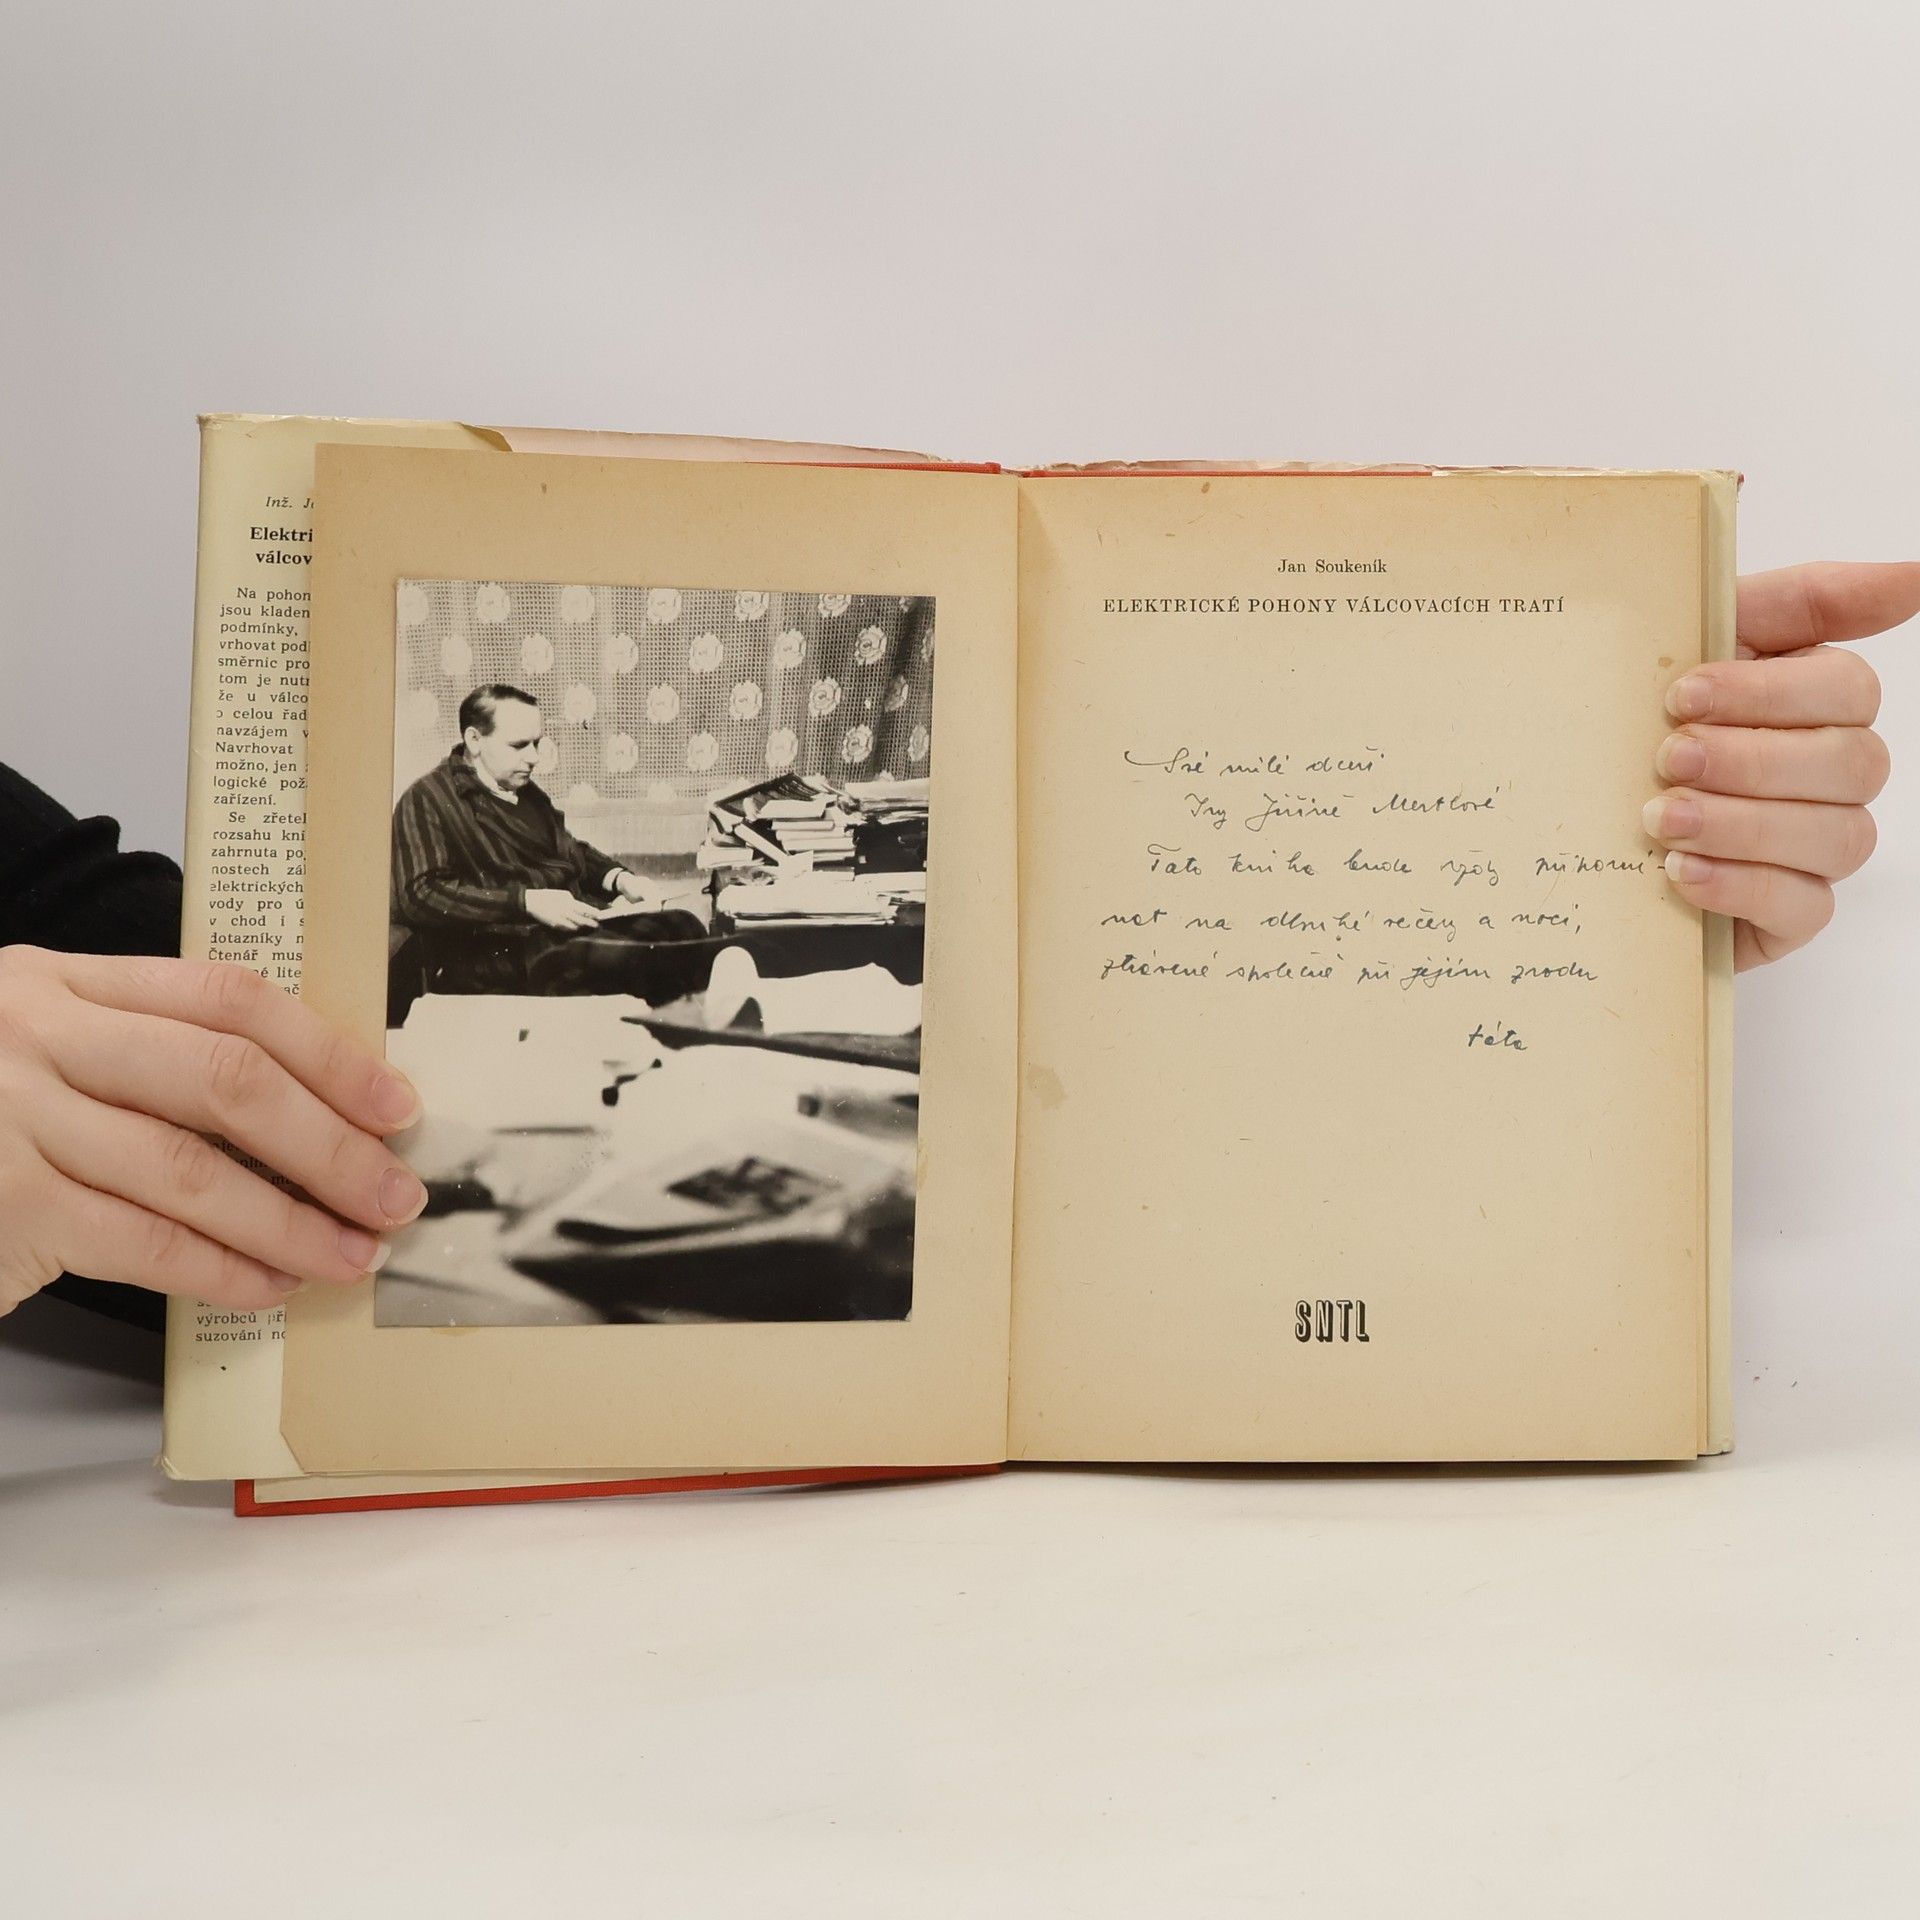 Inž. J
Elektri
válcov
Na pohon
jsou kladen
podmínky,
vrhovat pod
směrnic pro
tom je nutn
že u válco
o celou řad
navzájem v
Navrhovat
možno, jen
logické pož
zařízení.
Se zřetel
rozsahu kni
zahrnuta po
nostech zá
elektrických
vody pro ú
v chod i s
dotazníky n
Čtenář mus
né lite
ač
výrobců př
suzování no
Jan Soukeník
ELEKTRICKÉ POHONY VÁLCOVACÍCH TRATÍ
Své milé dceři
Ing Jiřině Mertlové
Tato kniha bude vždy připomí-
nat na dlouhé večery a noci,
ztrávené společně při jejím zrodu
táta
SNTL